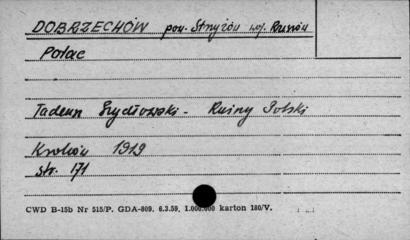 DOBRZECHÓW pow. Strzyżów woj. Rzeszów
Pałac
Tadeusz Szydłowski - Ruiny Polski
Kraków 1919
str. 171
CWD B-15b Nr 515/P. GDA-809. 6.3.59. 1.000.000 karton 180/V.